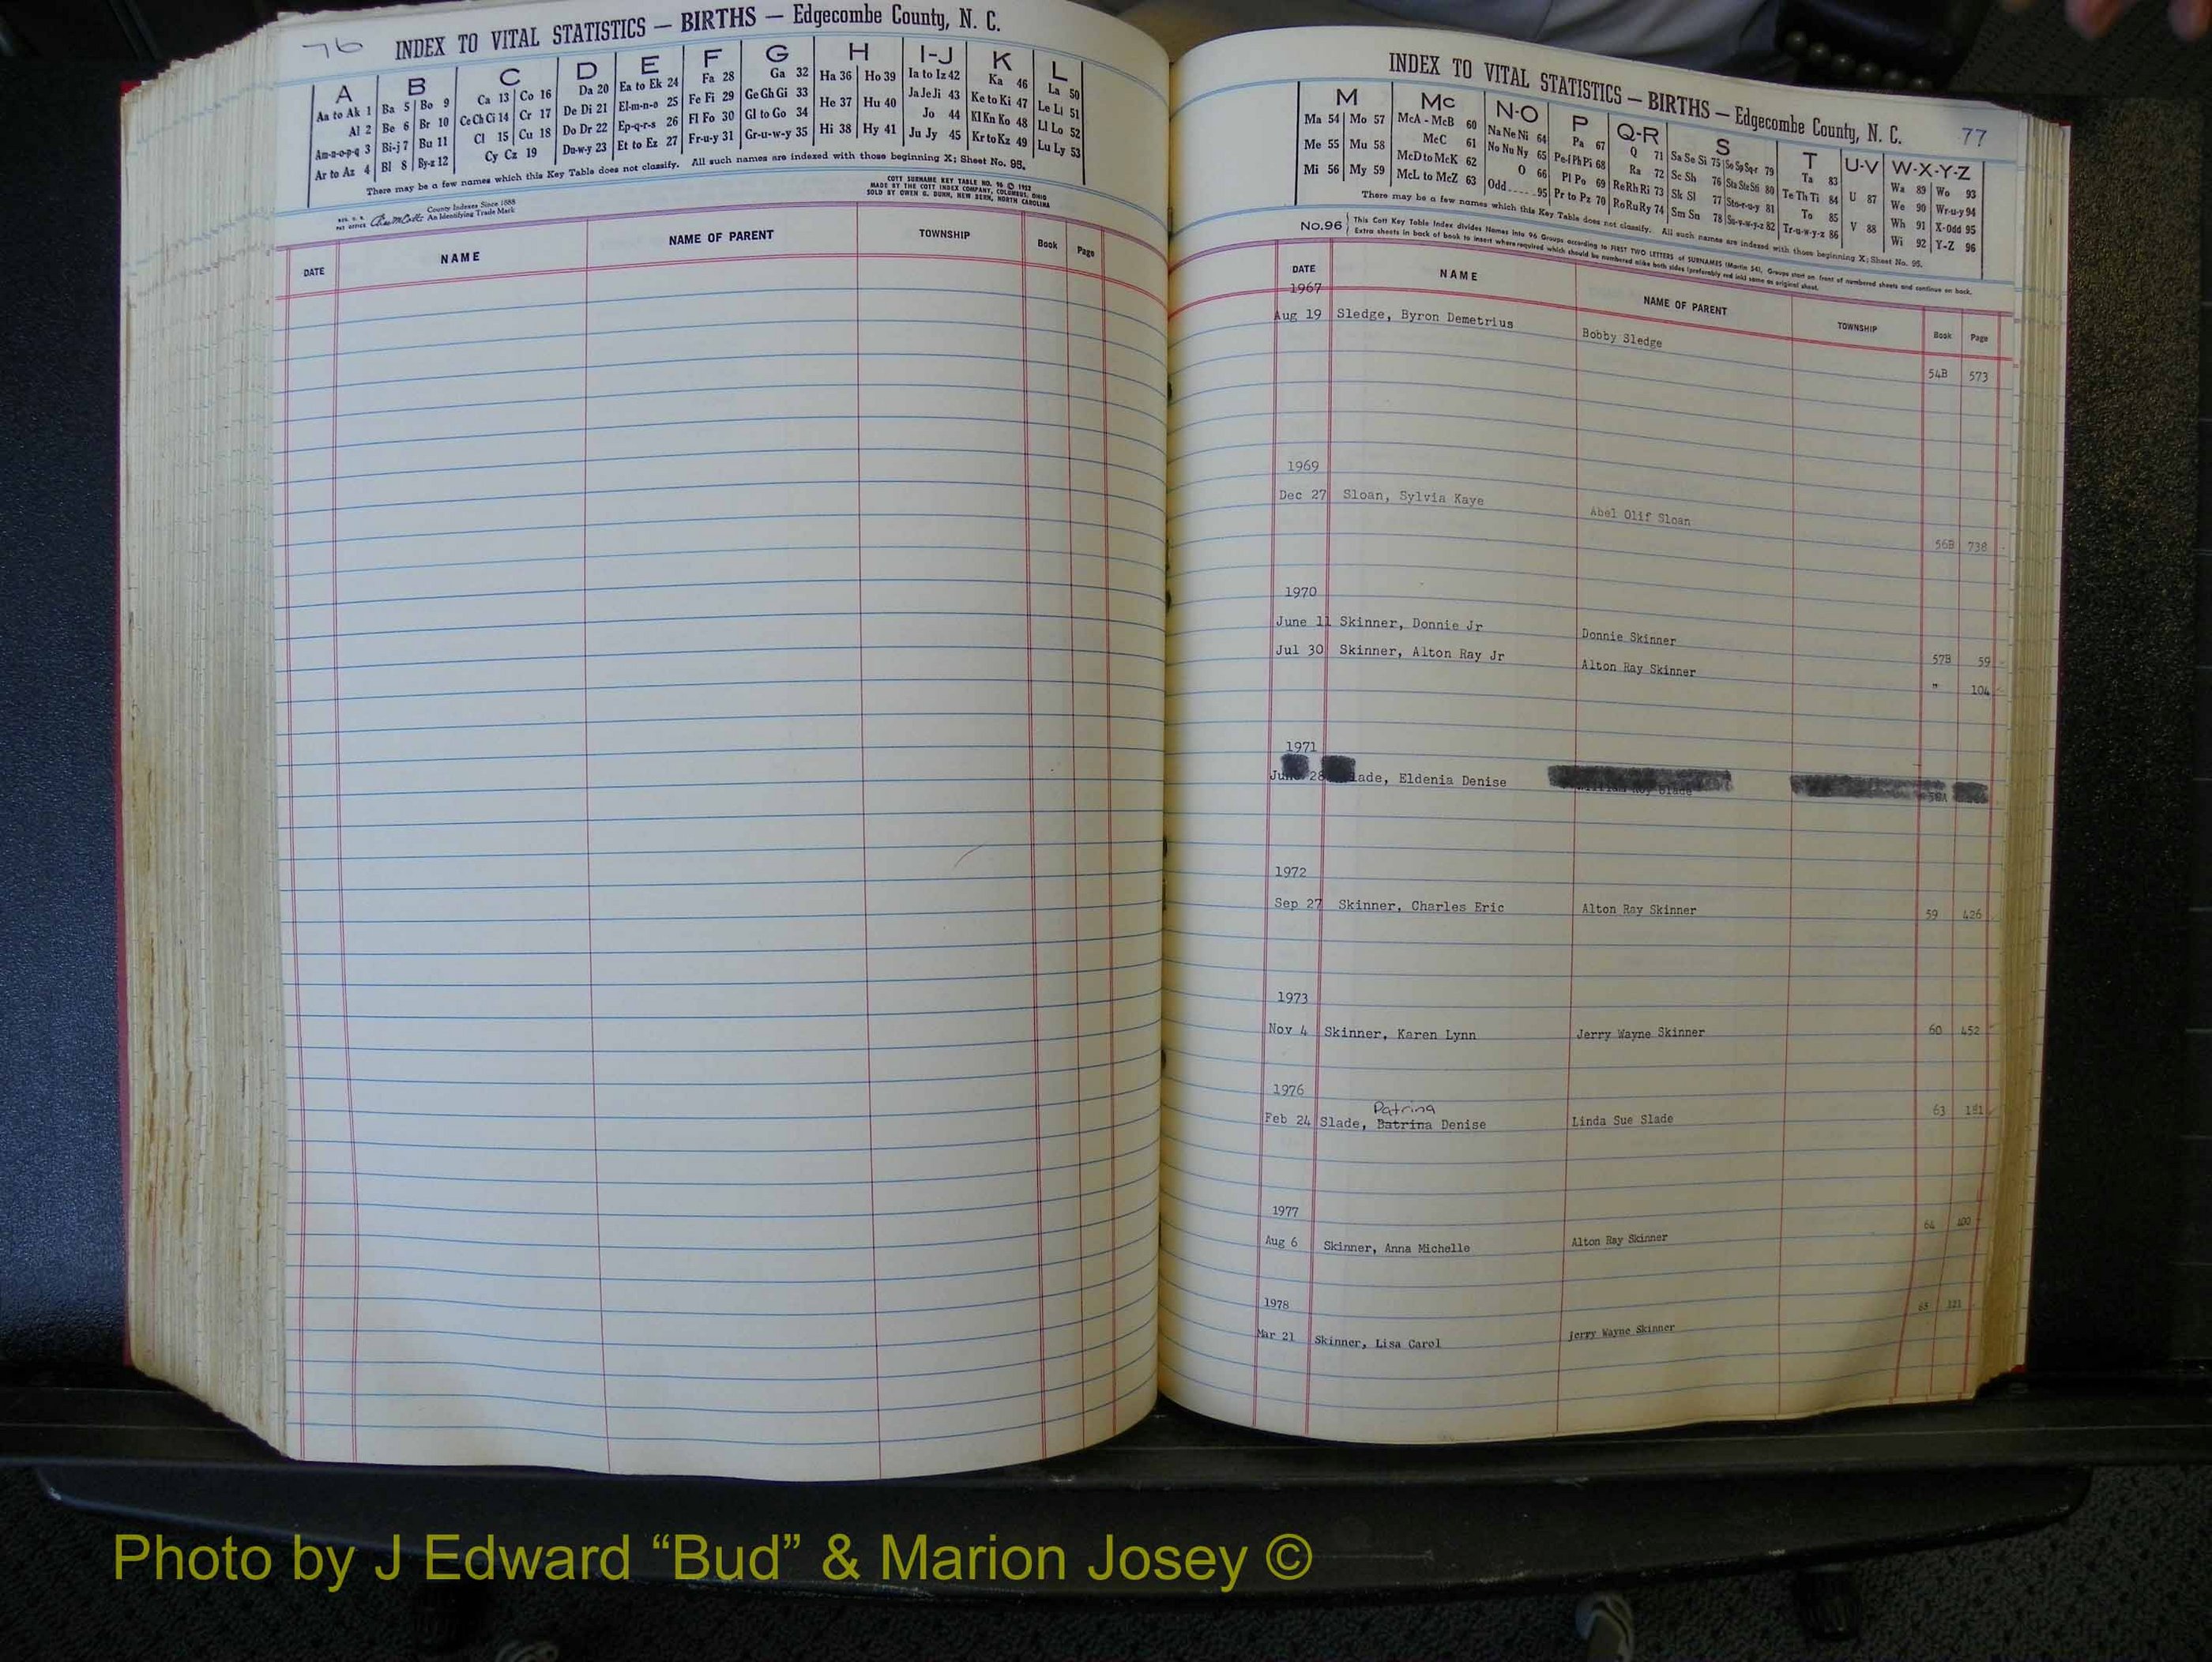 76
INDEX TO VITAL STATISTICS — BIRTHS — Edgecombe County, N. C.
A B C D E F G H I-J K L
Aa to Ak 1 Ba 5 Bo 9 Ca 13 Co 16 Da 20 Ea to Ek 24 Fa 28 Ga 32 Ha 36 Ho 39 Ia to Iz 42 Ka 46 La 50
Al 2 Be 6 Br 10 Ce Ch Ci 14 Cr 17 De Di 21 El-m-n-o 25 Fe Fi 29 Ge Gh Gi 33 He 37 Hu 40 Ja Je Ji 43 Ke to Ki 47 Le Li 51
Am-n-o-p-q 3 Bi-j 7 Bu 11 Cl 15 Cu 18 Do Dr 22 Ep-q-r-s 26 Fl Fo 30 Gl to Go 34 Hi 38 Hy 41 Jo 44 Kl Kn Ko 48 Ll Lo 52
Ar to Az 4 Bl 8 By-z 12 Cy Cz 19 Du-w-y 23 Et to Ez 27 Fr-u-y 31 Gr-u-w-y 35 Ju Jy 45 Kr to Kz 49 Lu Ly 53
There may be a few names which this Key Table does not classify. All such names are indexed with those beginning X; Sheet No. 95.
County Indexes Since 1888
An Identifying Trade Mark
COTT SURNAME KEY TABLE NO. 96 © 1952
MADE BY THE COTT INDEX COMPANY, COLUMBUS, OHIO
SOLD BY OWEN G. DUNN, NEW BERN, NORTH CAROLINA
DATE NAME NAME OF PARENT TOWNSHIP Book Page
INDEX TO VITAL STATISTICS — BIRTHS — Edgecombe County, N. C. 77
M Mc N-O P Q-R S T U-V W-X-Y-Z
Ma 54 Mo 57 McA - McB 60 Na Ne Ni 64 Pa 67 Q 71 Sa Se Si 75 So Sp Sq-r 79 Ta 83 U 87 Wa 89 Wo 93
Me 55 Mu 58 McC 61 No Nu Ny 65 Pe-f Ph Pi 68 Ra 72 Sc Sh 76 Sta Ste Sti 80 Te Th Ti 84 V 88 We 90 Wr-u-y 94
Mi 56 My 59 McD to McK 62 O 66 Pl Po 69 Re Rh Ri 73 Sk Sl 77 Sto-r-u-y 81 To 85 Wh 91 X-Odd 95
McL to McZ 63 Odd 95 Pr to Pz 70 Ro Ru Ry 74 Sm Sn 78 Su-v-w-y-z 82 Tr-u-w-y-z 86 Wi 92 Y-Z 96
There may be a few names which this Key Table does not classify. All such names are indexed with those beginning X; Sheet No. 95.
No.96 This Cott Key Table Index divides Names into 96 Groups according to FIRST TWO LETTERS of SURNAMES (Martin 54). Groups start on front of numbered sheets and continue on back.
Extra sheets in back of book to insert where required which should be numbered alike both sides (preferably red ink) same as original sheet.
DATE NAME NAME OF PARENT TOWNSHIP Book Page
1967
Aug 19 Sledge, Byron Demetrius Bobby Sledge 54B 573
1969
Dec 27 Sloan, Sylvia Kaye Abel Olif Sloan 56B 738
1970
June 11 Skinner, Donnie Jr Donnie Skinner 57B 59
Jul 30 Skinner, Alton Ray Jr Alton Ray Skinner " 104
1971
28 lade, Eldenia Denise
1972
Sep 27 Skinner, Charles Eric Alton Ray Skinner 59 426
1973
Nov 4 Skinner, Karen Lynn Jerry Wayne Skinner 60 452
1976
Patrina
Feb 24 Slade, Batrina Denise Linda Sue Slade 63 181
1977
Aug 6 Skinner, Anna Michelle Alton Ray Skinner 64 400
1978
Mar 21 Skinner, Lisa Carol Jerry Wayne Skinner 65 121
Photo by J Edward “Bud” & Marion Josey ©